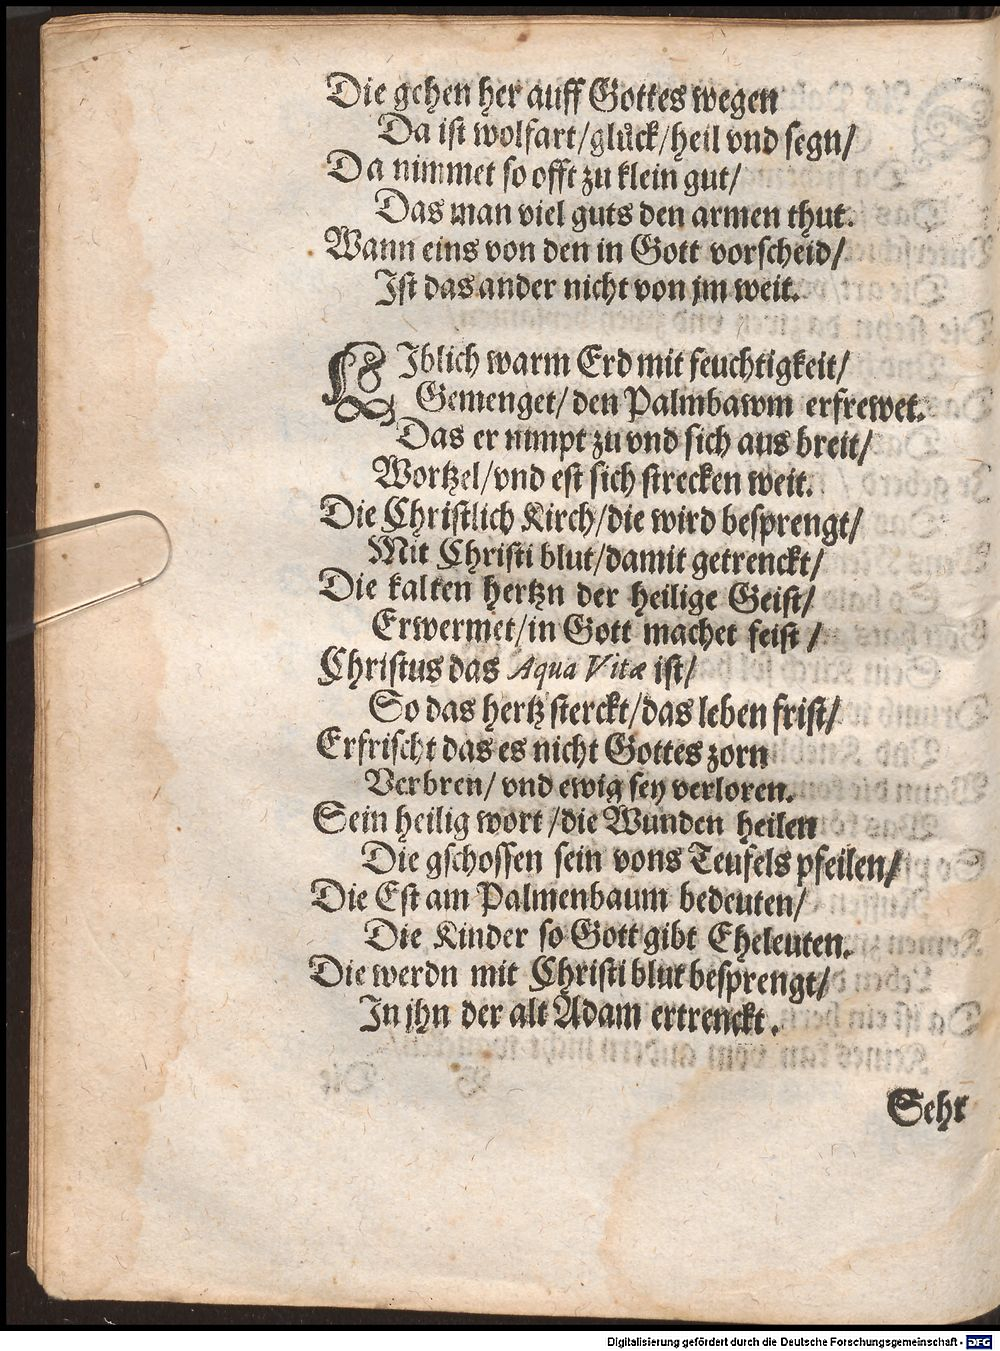 Die gehen her auff Gottes wegen
Da ist wolfart/glůck/heil vnd segn/
Da nimmet so offt zu klein gut/
Das man viel guts den armen thut.
Wann eins von den in Gott vorscheid/
Ist das ander nicht von jm weit.
LIblich warm Erd mit feuchtigkeit/
Gemenget/ den Palmbawm erfrewet.
Das er nimpt zu vnd sich aus breit/
Wortzel/vnd est sich strecken weit.
Die Christlich Kirch/die wird besprengt/
Mit Christi blut/damit getrenckt/
Die kalten hertzn der heilige Geist/
Erwermet/in Gott machet feist /
Christus das Aqua Vitæ ist/
So das hertz sterckt/das leben frist/
Erfrischt das es nicht Gottes zorn
Verbren/ vnd ewig sey verloren.
Sein heilig wort /die Wunden heilen
Die gschossen sein vons Teufels pfeilen/
Die Est am Palmenbaum bedeuten/
Die Kinder so Gott gibt Eheleuten.
Die werdn mit Christi blut besprengt/
In jhn der alt Adam ertrenckt.
Sehr
Digitalisierung gefördert durch die Deutsche Forschungsgemeinschaft - DFG